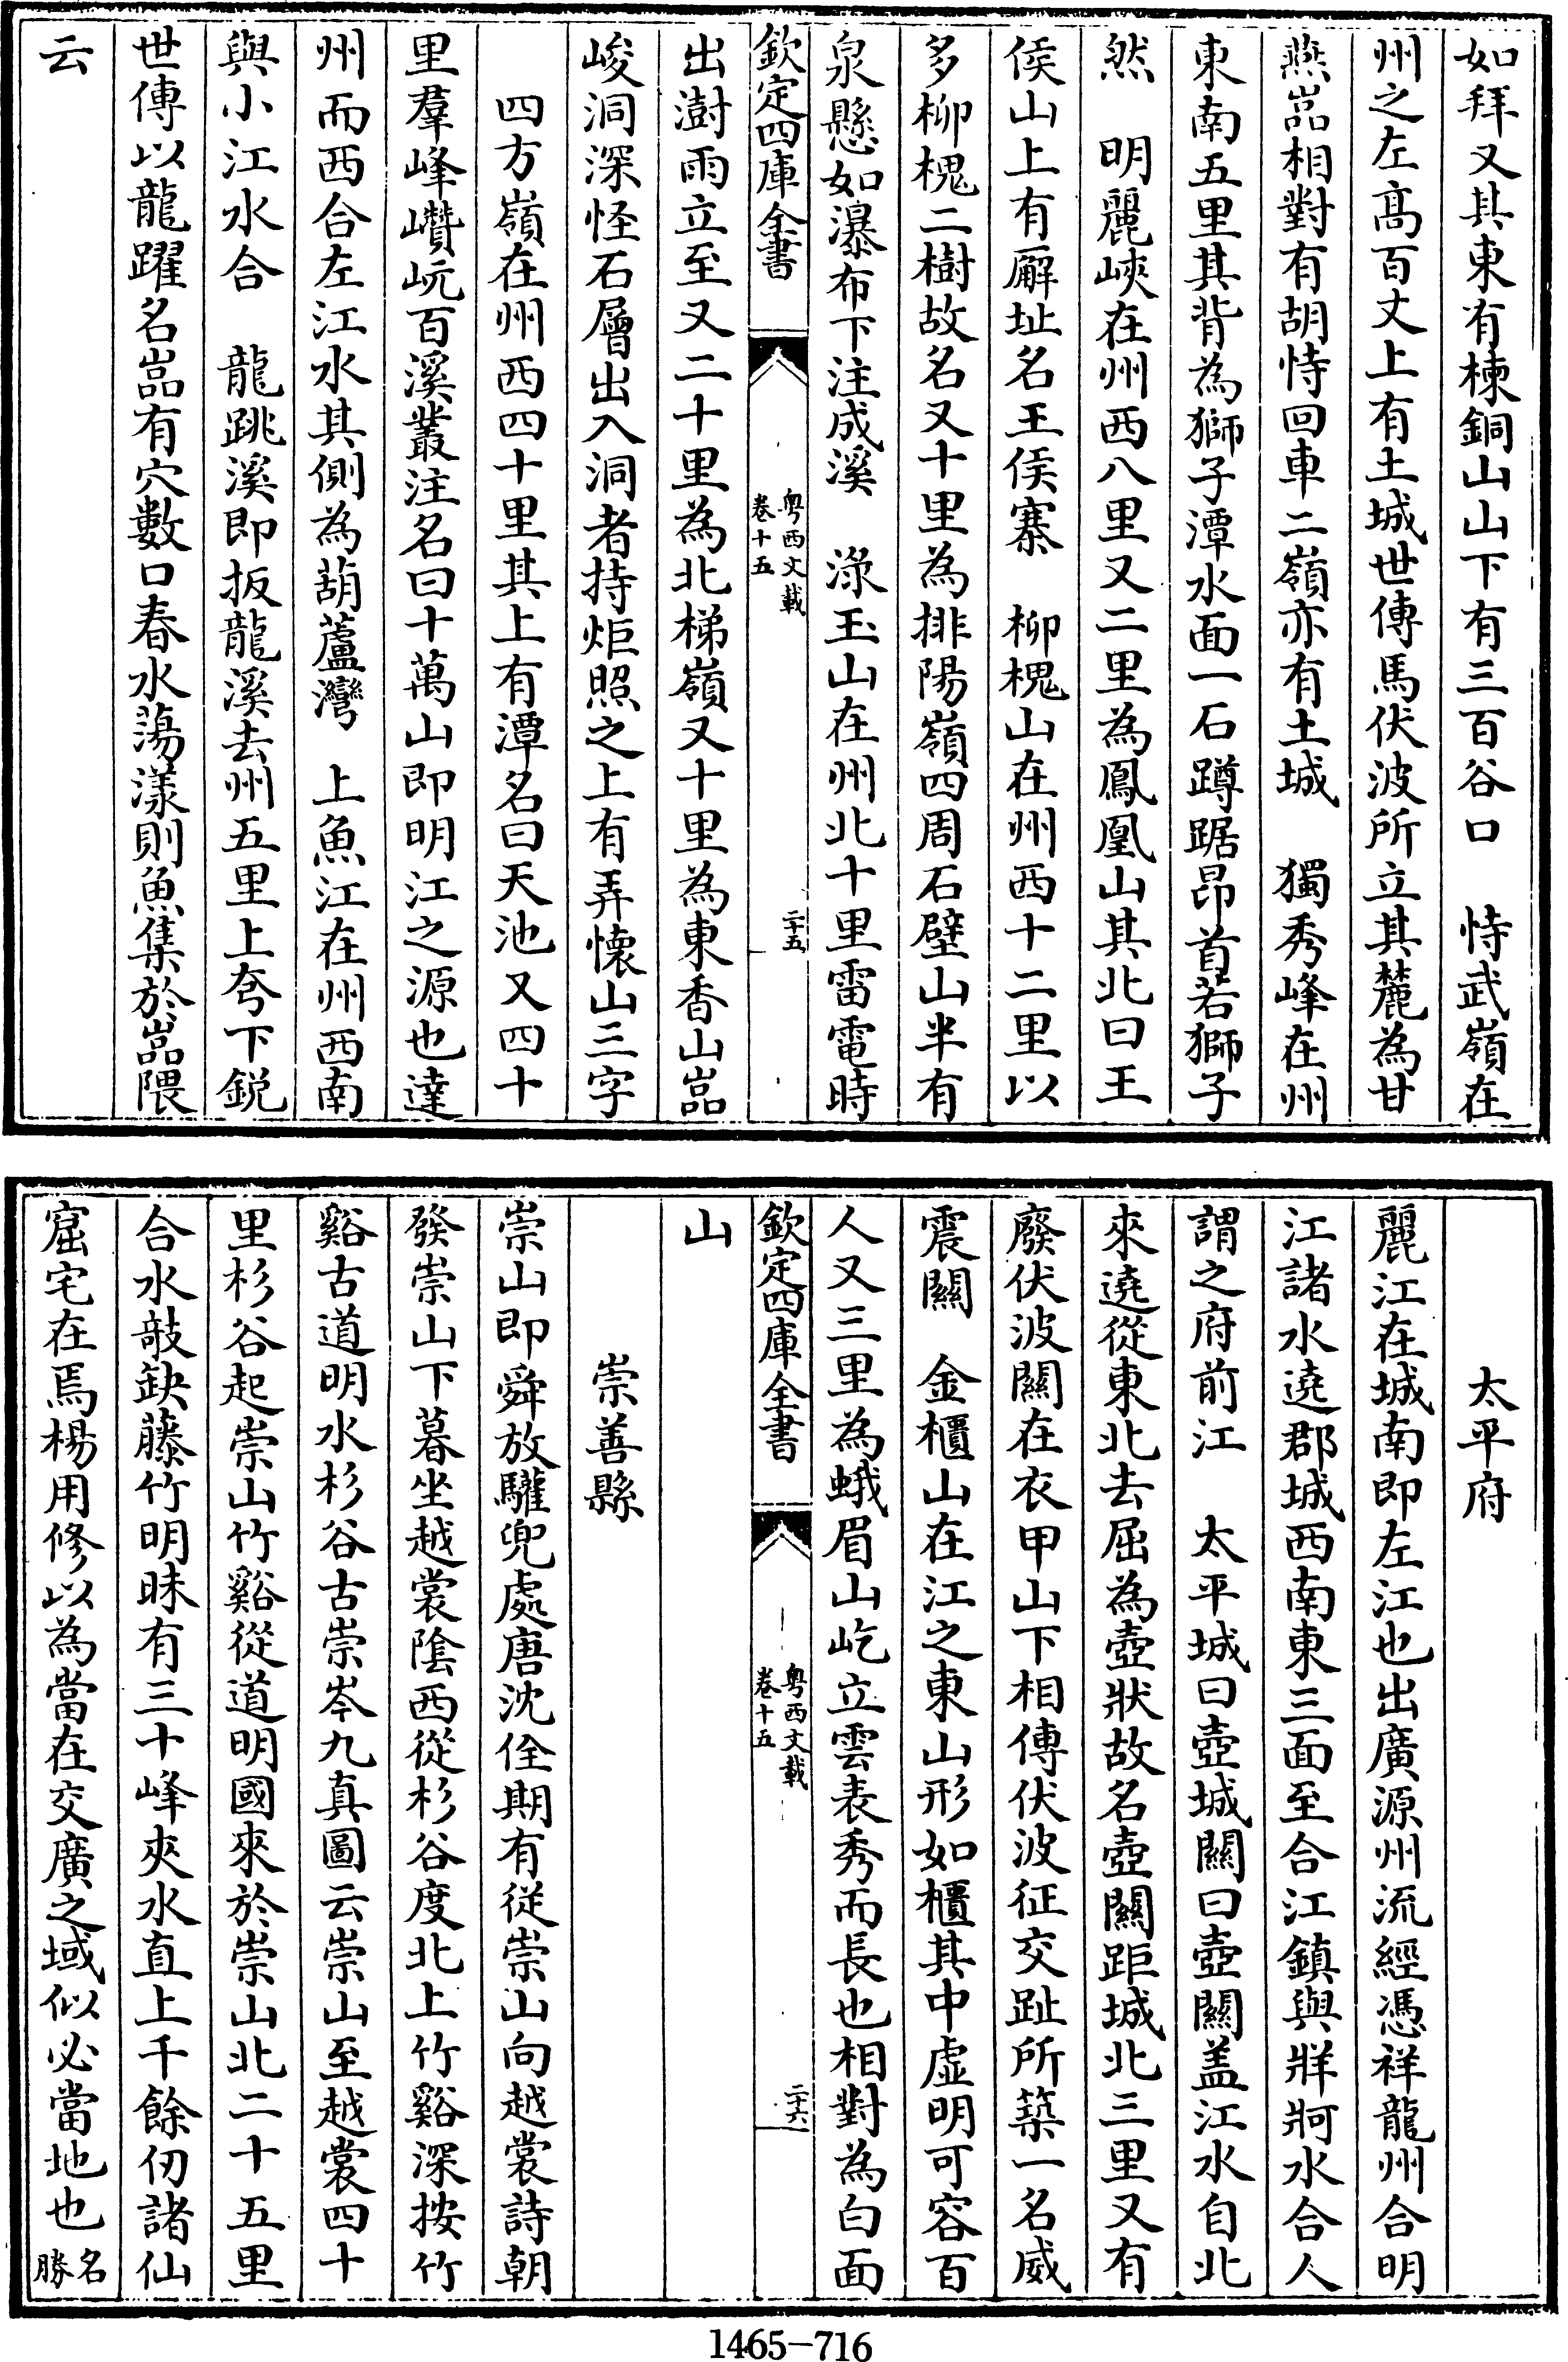 如拜又其東有棟銅山山下有三百谷口　恃武嶺在
州之左髙百丈上有土城世傳馬伏波所立其麓為甘
燕嵓相對有胡恃回車二嶺亦有土城　獨秀峰在州
東南五里其背為獅子潭水面一石蹲踞昂首若獅子
然　明麗峽在州西八里又二里為鳳凰山其北曰王
侯山上有廨址名王侯寨　柳槐山在州西十二里以
多柳槐二樹故名又十里為排陽嶺四周石壁山半有
泉懸如瀑布下注成溪　渌玉山在州北十里雷電時
欽定四庫全書
粵西文載
卷十五
二十五
出澍雨立至又二十里為北梯嶺又十里為東香山嵓
峻洞深怪石層出入洞者持炬照之上有弄懷山三字
四方嶺在州西四十里其上有潭名曰天池又四十
里羣峰巑岏百溪叢注名曰十萬山即明江之源也達
州而西合左江水其側為葫蘆灣　上魚江在州西南
與小江水合　龍跳溪即扳龍溪去州五里上夸下銳
世傳以龍躍名嵓有穴數口春水蕩漾則魚集於嵓隈
云
太平府
麗江在城南即左江也出廣源州流經憑祥龍州合明
江諸水遶郡城西南東三面至合江鎮與牂牁水合人
謂之府前江　太平城曰壺城關曰壺關盖江水自北
來遶從東北去屈為壺狀故名壺關距城北三里又有
廢伏波關在衣甲山下相傳伏波征交趾所築一名威
震關　金櫃山在江之東山形如櫃其中虛明可容百
人又三里為蛾眉山屹立雲表秀而長也相對為白面
欽定四庫全書
粵西文載
卷十五
二十六
山
崇善縣
崇山即舜放驩兜處唐沈佺期有從崇山向越裳詩朝
發崇山下暮坐越裳陰西從杉谷度北上竹谿深按竹
谿古道明水杉谷古崇岑九真圖云崇山至越裳四十
里杉谷起崇山竹谿從道明國來於崇山北二十五里
合水敧缺藤竹明昧有三十峰夾水直上千餘仞諸仙
窟宅在焉楊用修以為當在交廣之域似必當地也名勝
1465-716